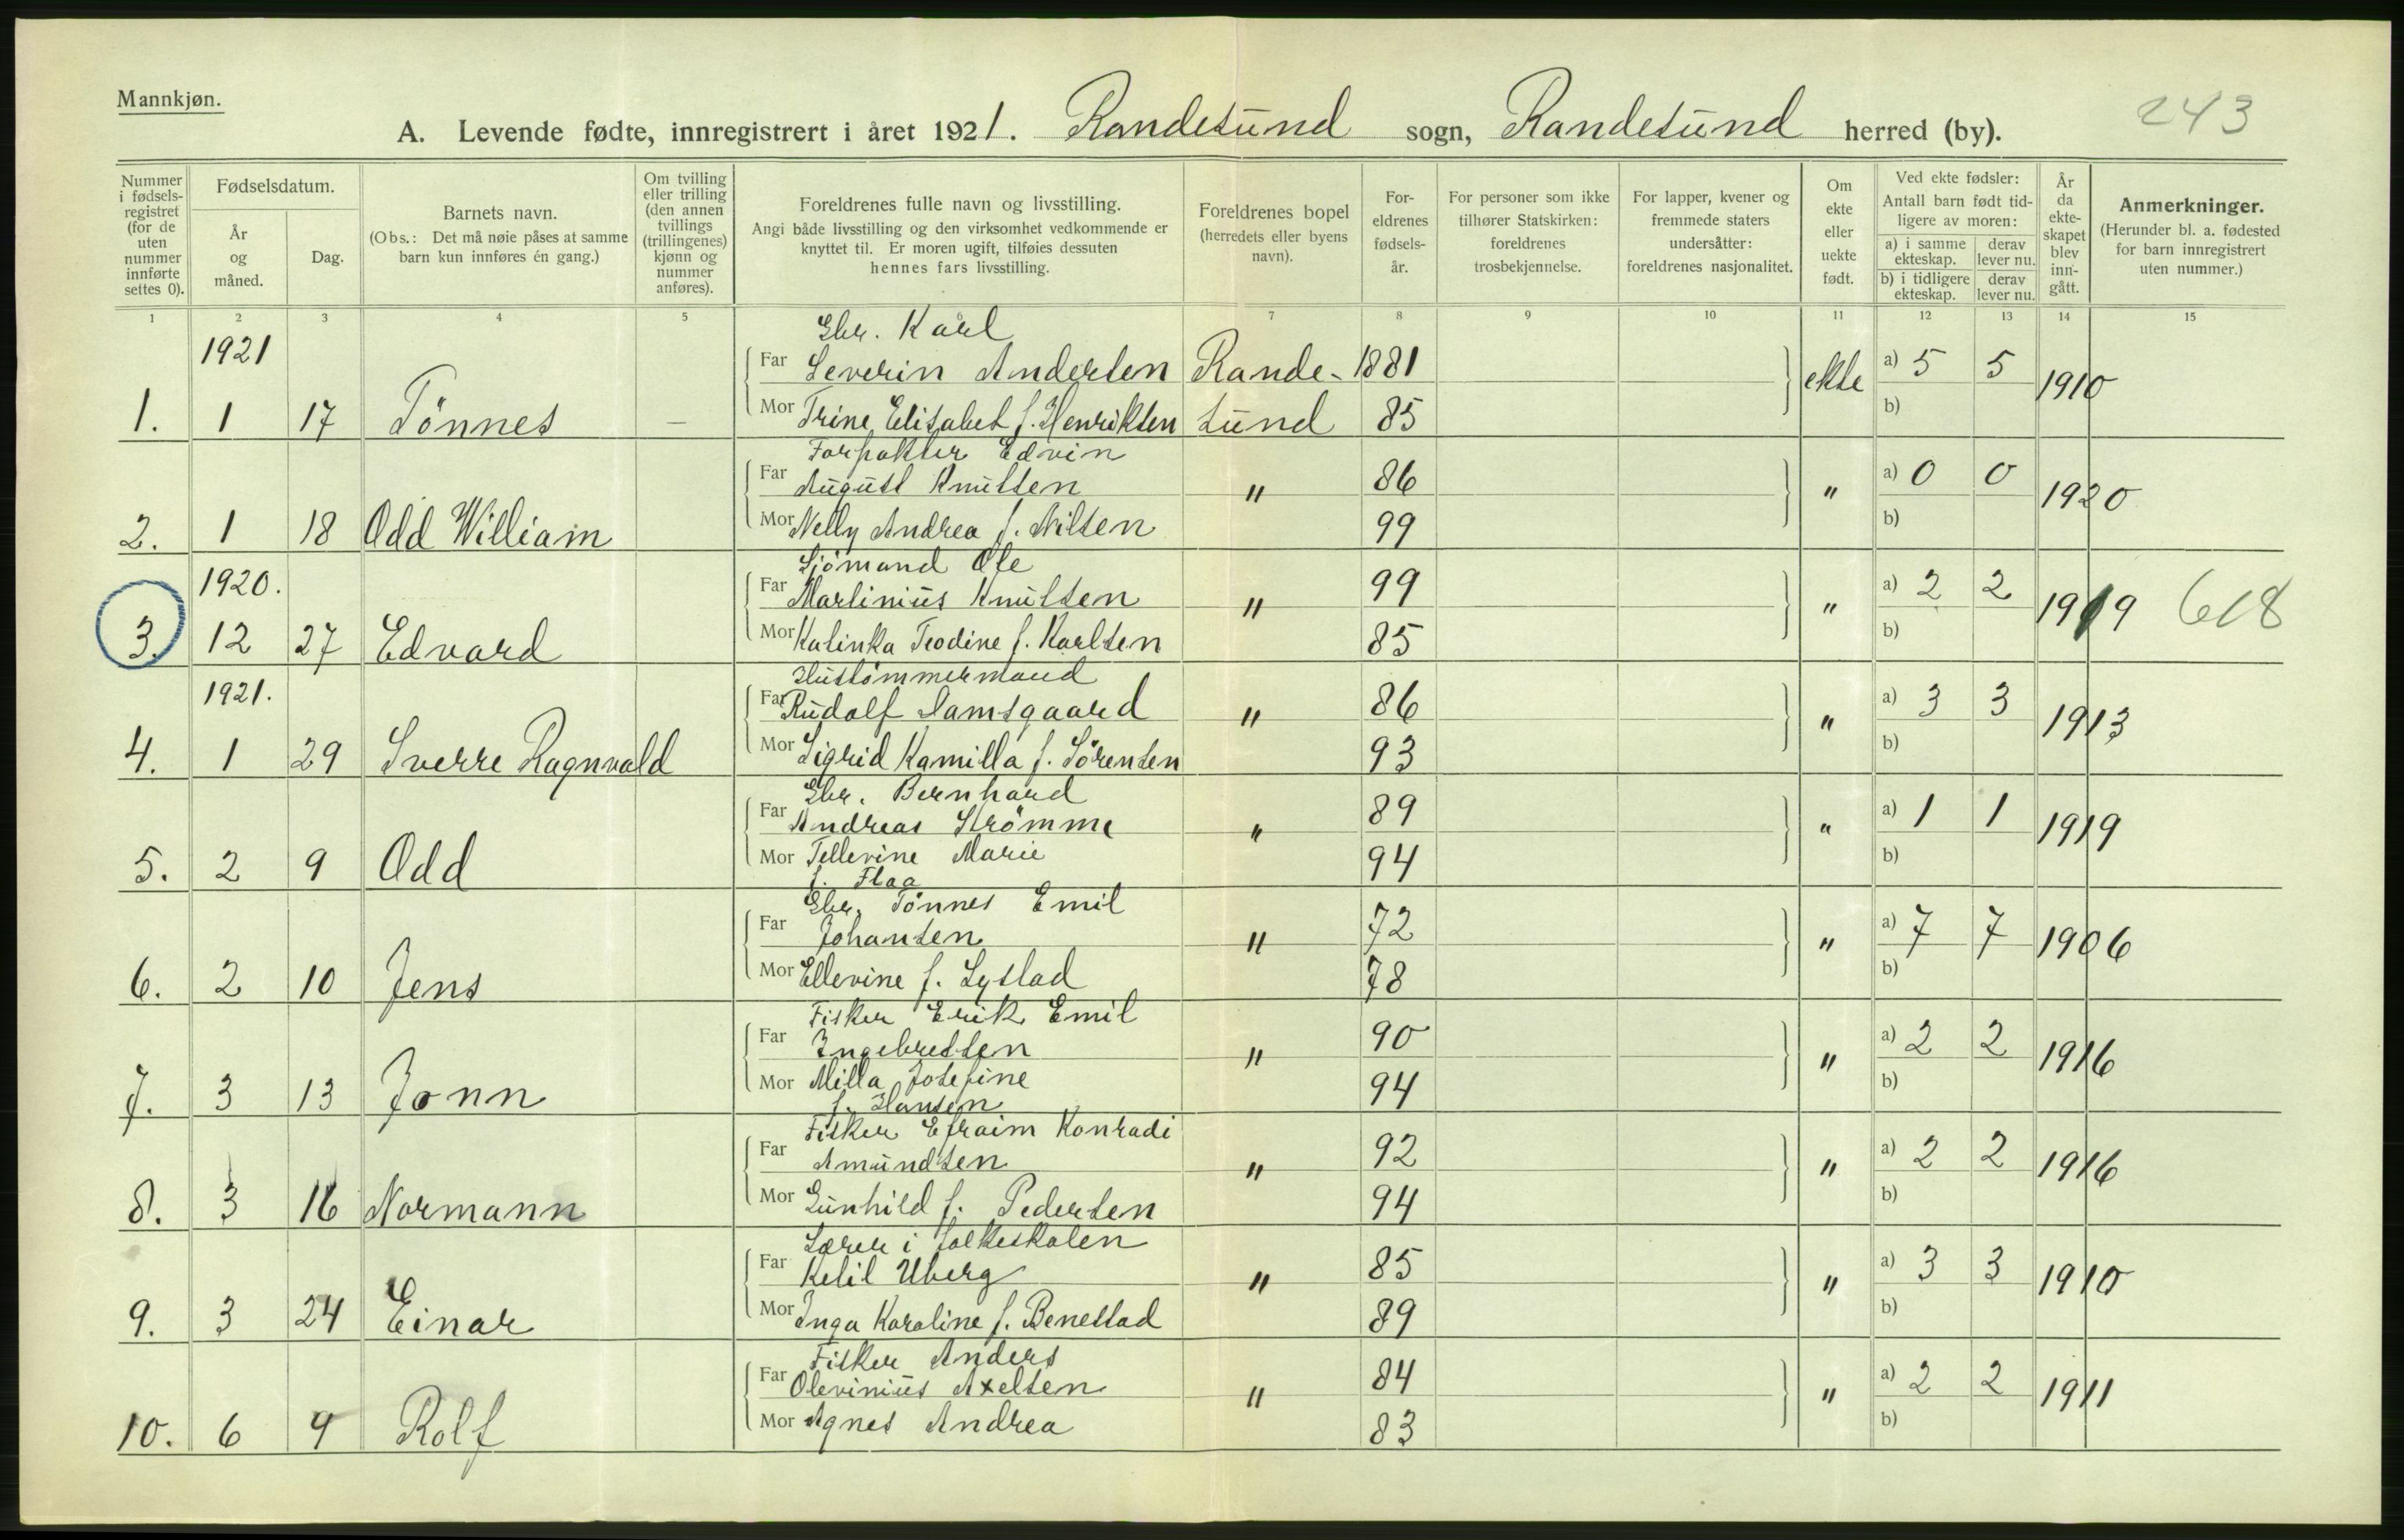 Mannkjøn.
243
A. Levende fødte, innregistrert i året 1921. Randesund sogn, Randesund herred (by).
Nummer i fødsels-registret (for de uten nummer innførte settes 0).
Fødselsdatum.
År og måned.
Dag.
Barnets navn.
(Obs.: Det må nøie påses at samme barn kun innføres én gang.)
Om tvilling eller trilling (den annen tvillings (trillingenes) kjønn og nummer anføres).
Foreldrenes fulle navn og livsstilling.
Angi både livsstilling og den virksomhet vedkommende er knyttet til. Er moren ugift, tilføies dessuten hennes fars livsstilling.
Foreldrenes bopel (herredets eller byens navn).
For-eldrenes fødsels-år.
For personer som ikke tilhører Statskirken: foreldrenes trosbekjennelse.
For lapper, kvener og fremmede staters undersåtter: foreldrenes nasjonalitet.
Om ekte eller uekte født.
Ved ekte fødsler: Antall barn født tid-ligere av moren:
a) i samme ekteskap. derav lever nu.
b) i tidligere ekteskap. derav lever nu.
År da ekte-skapet blev inn-gått.
Anmerkninger.
(Herunder bl. a. fødested for barn innregistrert uten nummer.)
1 2 3 4 5 7 8 9 10 11 12 13 14 15
1921
Gbr. Karl
Far Severin Andersen Rande- 1881 ekte a) 5 5 1910
1. 1 17 Tönnes — Mor Trine Elisabet f. Henriksen sund 85 b)
Forpakter Edvin
Far August Knutsen " 86 " a) 0 0 1920
2. 1 18 Odd William Mor Nelly Andrea f. Nilsen 99 b)
1920.
Sjömand Ole
Far Martinius Knutsen " 99 " a) 2 2 1919 618
3. 12 27 Edvard Mor Kalinka Teodine f. Karlsen 85 b)
1921.
Hustömmermand
Far Rudolf Damsgaard " 86 " a) 3 3 1913
4. 1 29 Sverre Ragnvald Mor Sigrid Kamilla f. Sörensen 93 b)
Gbr. Bernhard
Far Andreas Strömme " 89 " a) 1 1 1919
5. 2 9 Odd Mor Tellevine Marie 94 b)
f. Flaa
Gbr. Tönnes Emil
Far Johansen " 72 " a) 7 7 1906
6. 2 10 Jens Mor Ellevine f. Lystad 78 b)
Fisker Erik Emil
Far Ingebretsen " 90 " a) 2 2 1916
7. 3 13 Jonn Mor Milla Josefine 94 b)
f. Hansen
Fisker Efraim Konradi
Far Amundsen " 92 " a) 2 2 1916
8. 3 16 Normann Mor Gunhild f. Pedersen 94 b)
Lærer i folkeskolen
Far Ketil Uberg " 85 " a) 3 3 1910
9. 3 24 Einar Mor Inga Karoline f. Benestad 89 b)
Fisker Anders
Far Olevinius Axelsen " 84 " a) 2 2 1911
10. 6 9 Rolf Mor Agnes Andrea 83 b)